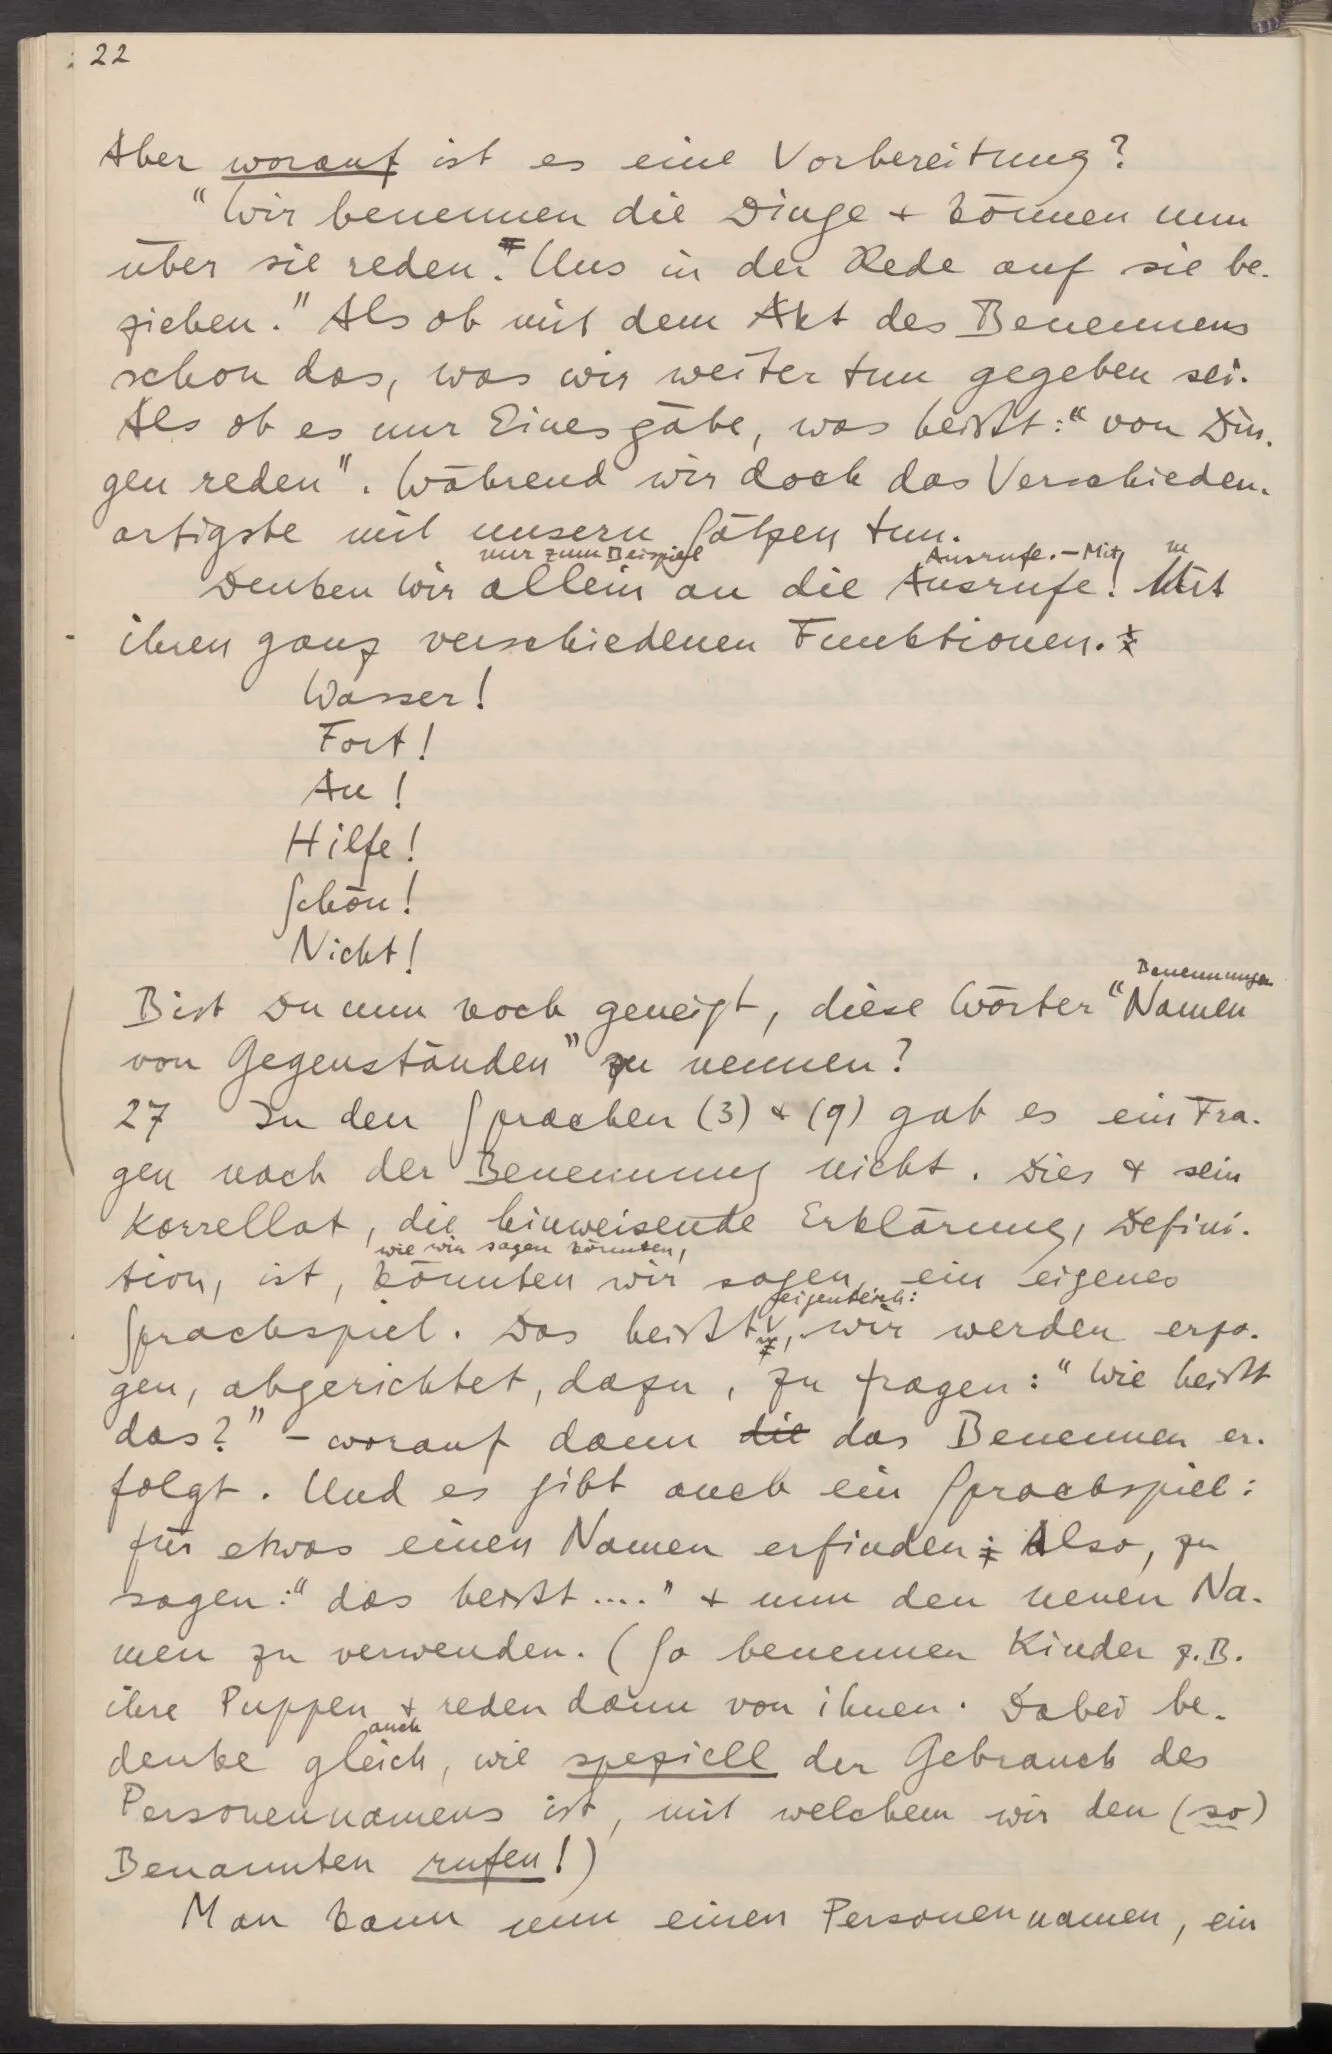 22
Aber worauf ist es eine Vorbereitung?
"Wir benennen die Dinge + können nun
über sie reden. Uns in der Rede auf sie be-
ziehen." Als ob mit dem Akt des Benennens
schon das, was wir weiter tun gegeben sei.
Als ob es nur Eines gäbe, was heißt: "von Din-
gen reden". Während wir doch das Verschieden-
artigste mit unsern Sätzen tun.
nur zum Beispiel Ausrufe. – Mit
Denken wir allein an die Ausrufe! Mit
ihren ganz verschiedenen Funktionen.
Wasser!
Fort!
Au!
Hilfe!
Schön!
Nicht!
Benennungen
Bist Du nun noch geneigt, diese Wörter "Namen
von Gegenständen" zu nennen?
27 In den Sprachen (3) + (9) gab es ein Fra-
gen nach der Benennung nicht. Dies + sein
Korrellat, die hinweisende Erklärung, Defini-
wie wir sagen könnten,
tion, ist, könnten wir sagen, ein eigenes
eigentlich:
Sprachspiel. Das heißt, wir werden erzo-
gen, abgerichtet, dazu, zu fragen: "Wie heißt
das?" – worauf dann die das Benennen er-
folgt. Und es gibt auch ein Sprachspiel:
für etwas einen Namen erfinden; Also, zu
sagen: "das heißt ...." + nun den neuen Na-
men zu verwenden. (So benennen Kinder z.B.
ihre Puppen + reden dann von ihnen. Dabei be-
auch
denke gleich, wie speziell der Gebrauch des
Personennamens ist, mit welchem wir den (so)
Benannten rufen!)
Man kann nun einen Personennamen, ein